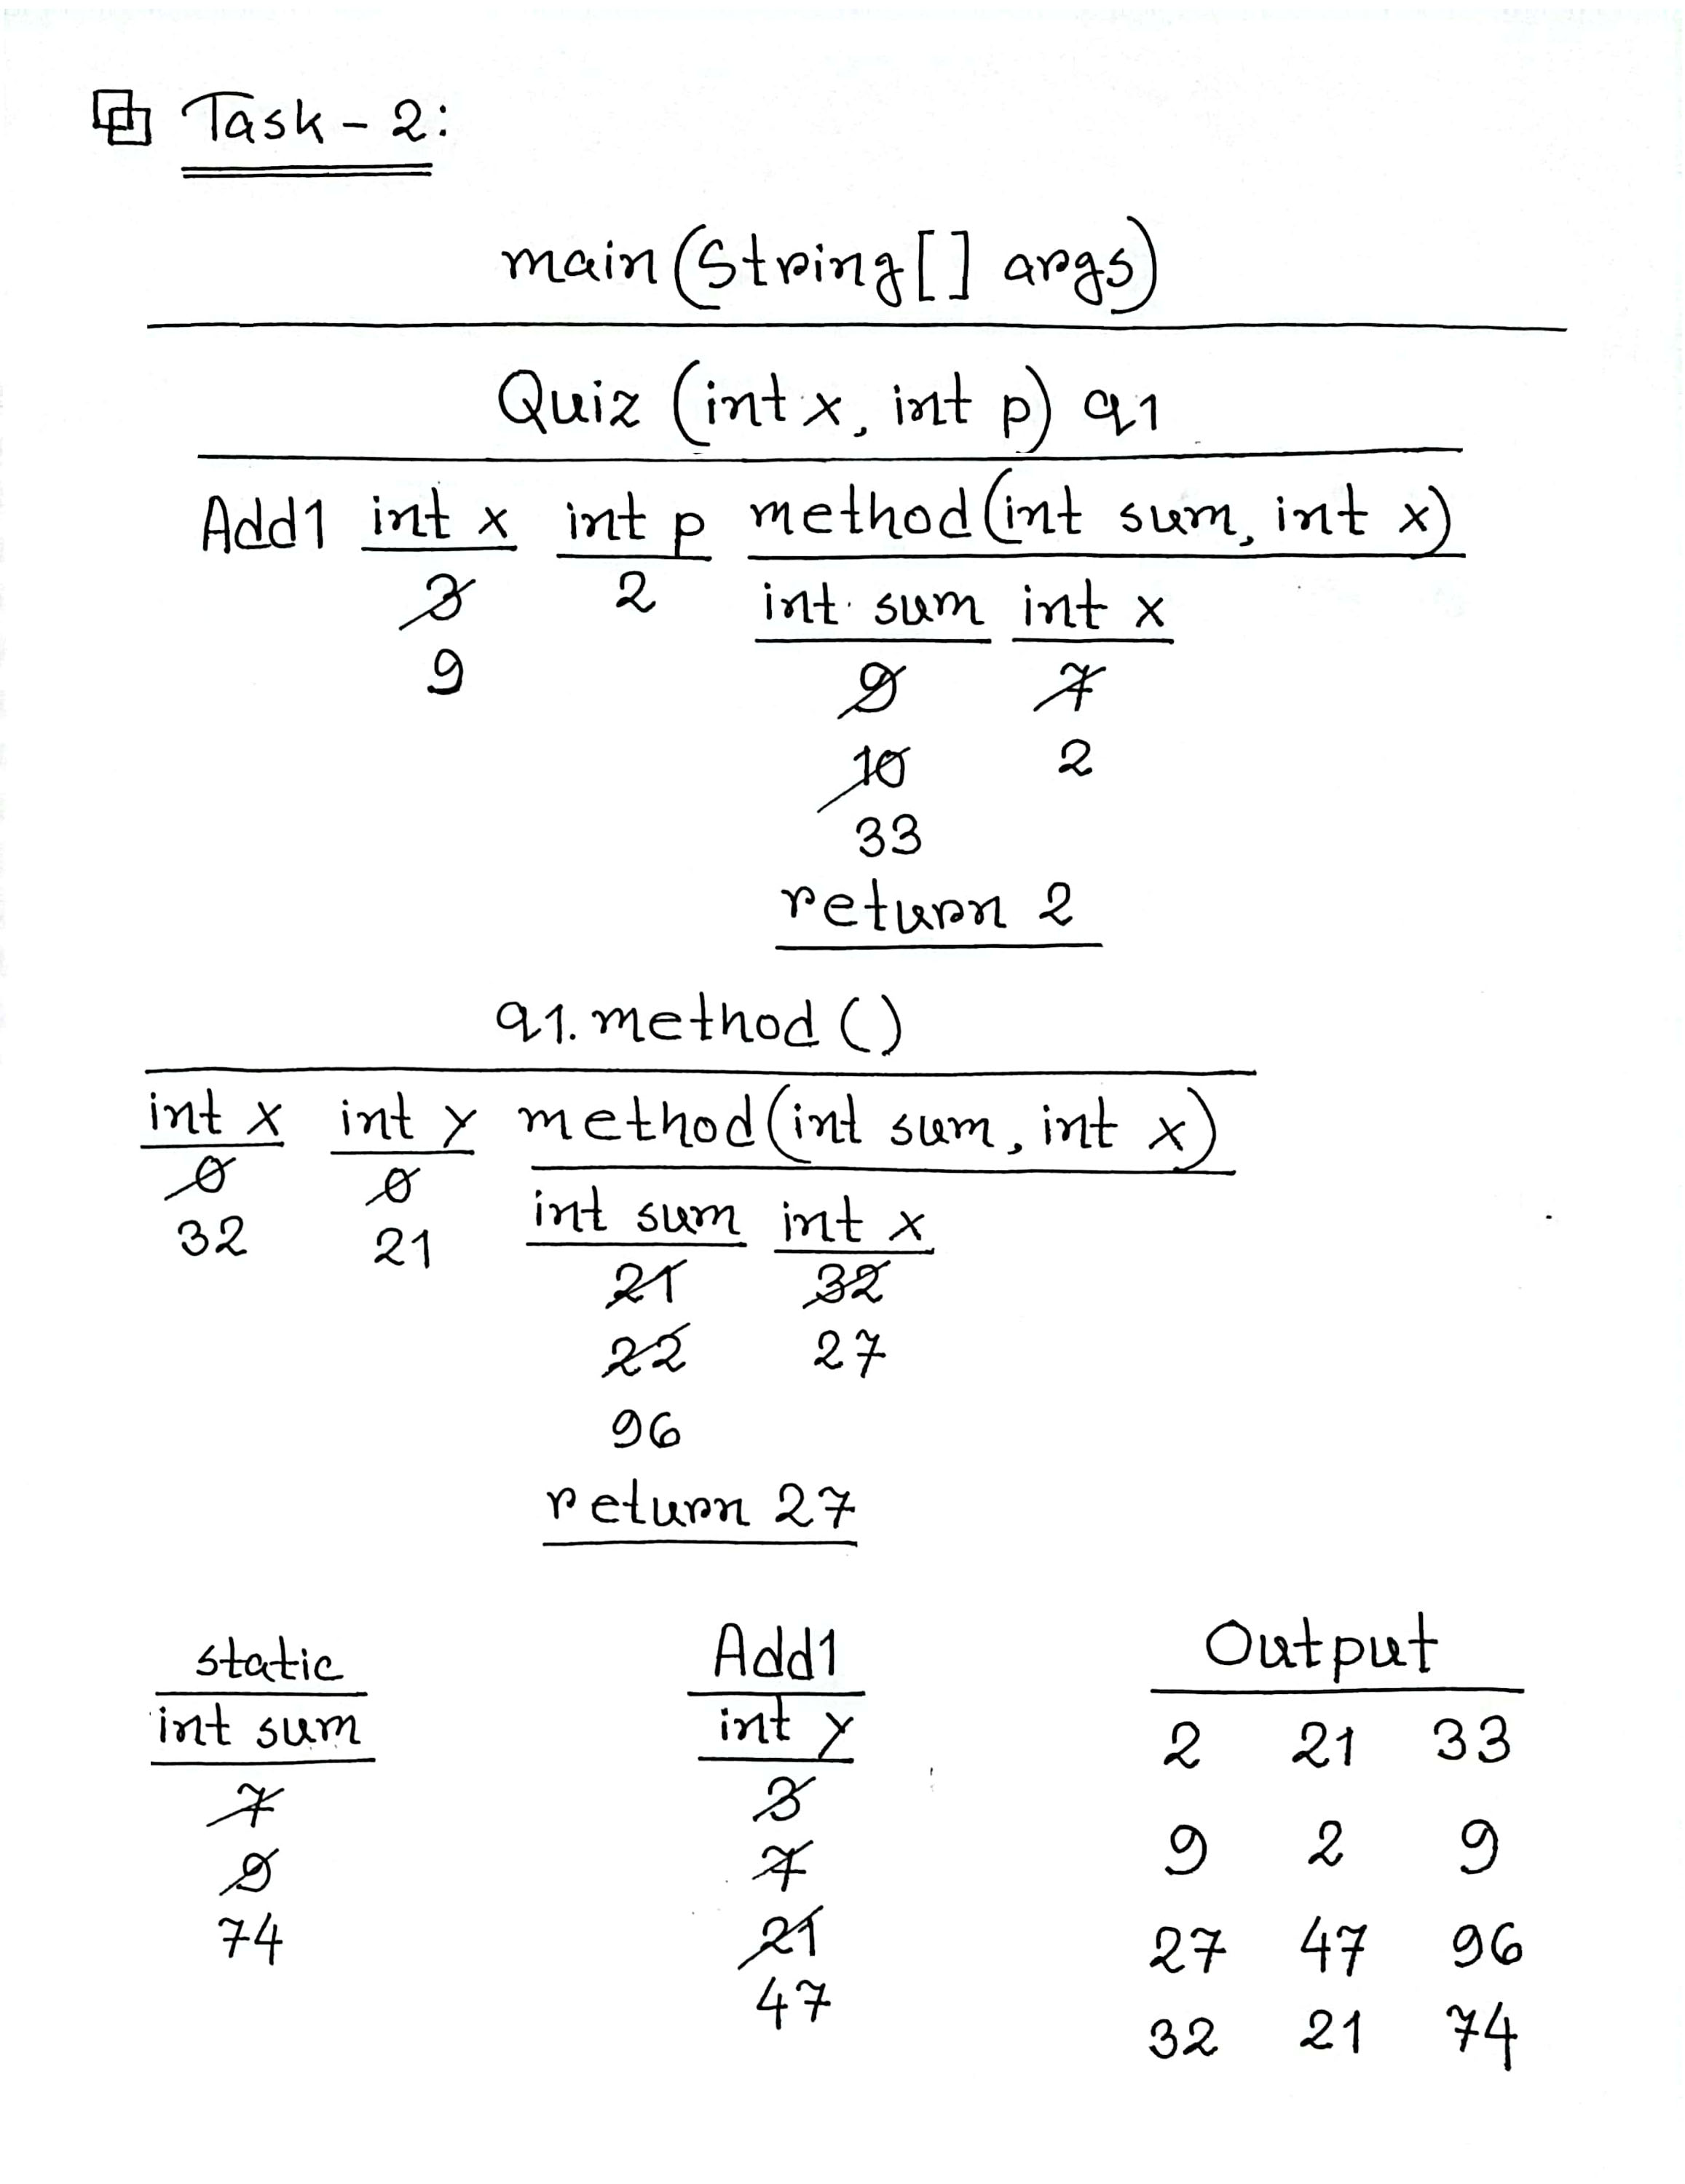 Task - 2:
main (String [] args)
Quiz (int x, int p) q1
Add1 int x int p method (int sum, int x)
3 2 int sum int x
9 9 7
10 2
33
return 2
q1. method ()
int x int y method (int sum, int x)
0 0 int sum int x
32 21 21 32
22 27
96
return 27
static Add1 Output
int sum int y 2 21 33
7 3
9 7 9 2 9
74 21 27 47 96
47 32 21 74